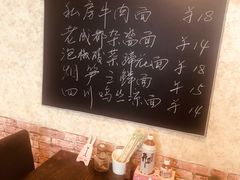 私房牛肉面 ¥18
老成都杂酱面 ¥14
泡椒酸菜鳝花面 ¥18
烟笋三鲜面 ¥15
四川鸡丝凉面 ¥14